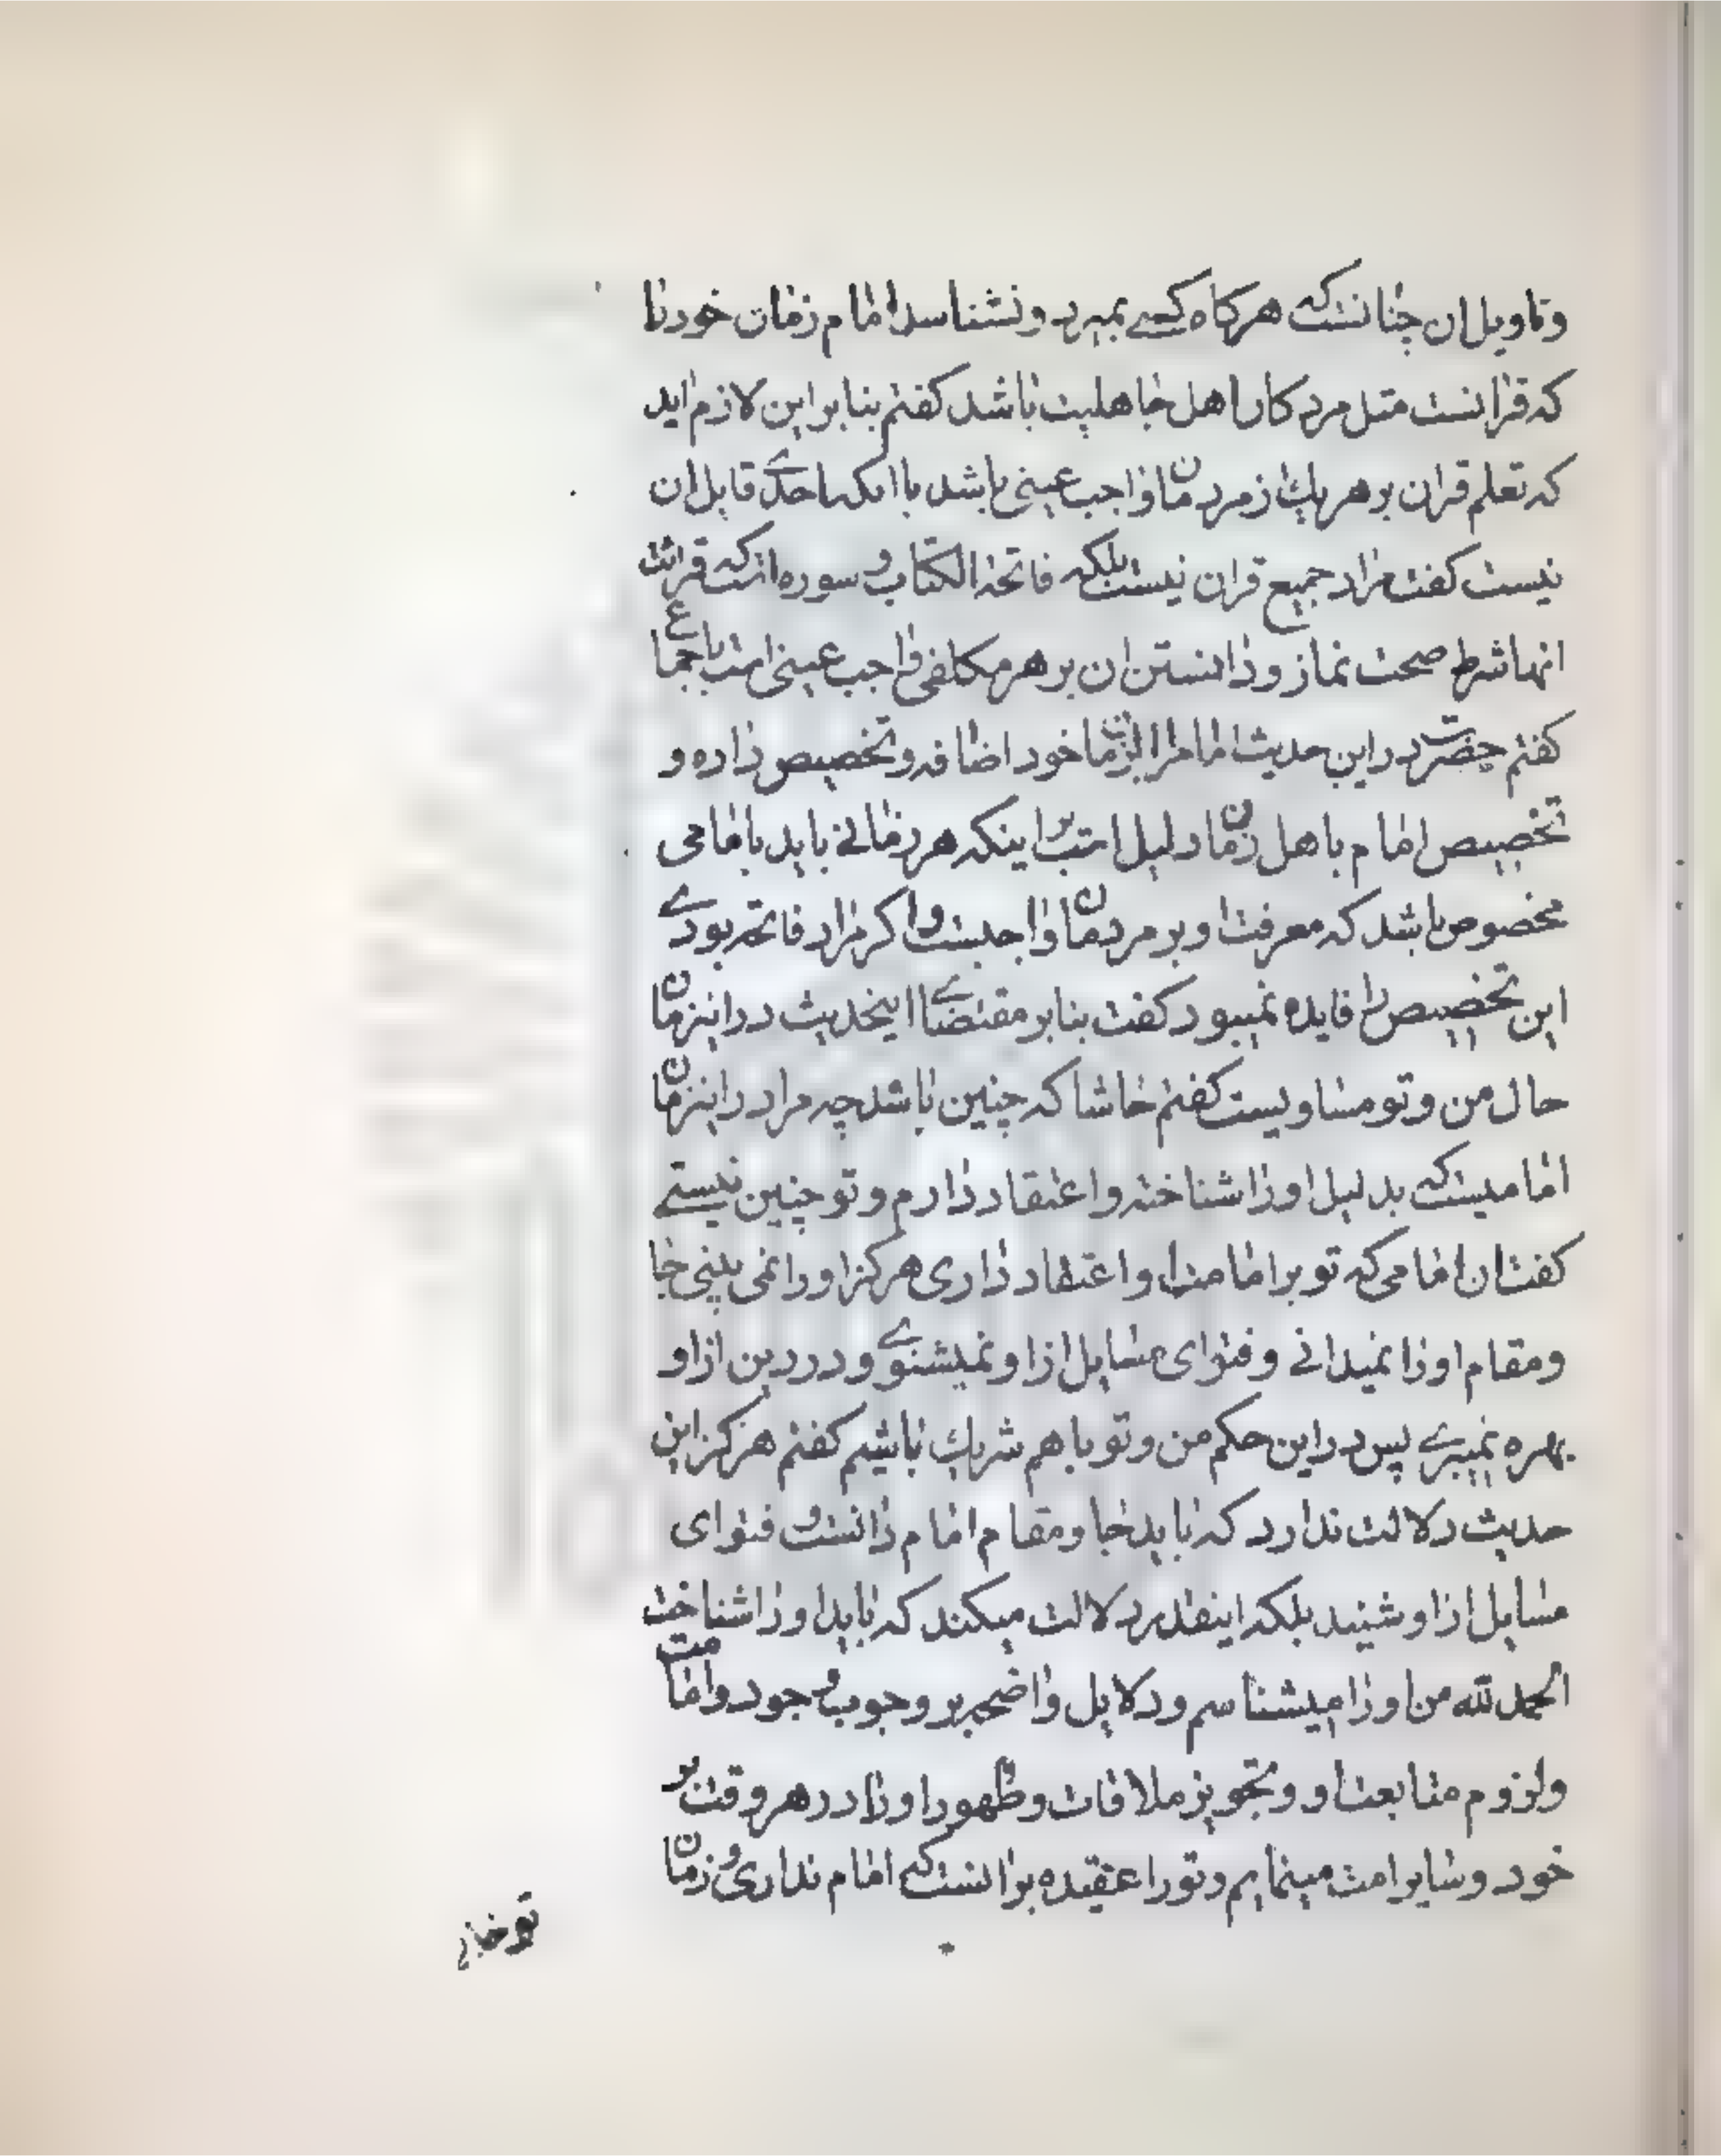 وتاویل ان چنانست که هرکاه کسے بمیرد ونشناسد امام زمان خود را
که قرانست مثل مرد کان اهل جاهلیت باشد کفتم بنابراین لازم اید
که تعلم قران بر هریک از مردمان واجب عینی باشد با انکه احدے قابل ان
نیست کفت مراد جمیع قران نیست بلکه فاتحة الکتاب و سوره است که قرائت
انها شرط صحت نماز ودانستن ان بر هر مکلفی واجب عینی است باجماع
کفتم حضرت در این حدیث امام را بزمان خود اضافه وتخصیص داده و
تخصیص امام باهل زمان دلیل است بر اینکه هر زمانے باید با امامی
مخصوص باشد که معرفت او بر مردمان واجبست و اکر مراد فاتحه بودے
این تخصیص را فایده نمیبود کفت بنابر مقتضاے اینحدیث در اینزمان
حال من وتو مساویست کفتم حاشا که چنین باشد چه مرا در اینزمان
امامیست که بدلیل او را شناخته واعتقاد دارم وتو چنین نیستے
کفت ان امامی که تو بر امامت او اعتقاد داری هرکز او را نمی بینی جا
ومقام او را نمیدانے وفتوای مسایل از او نمیشنوے ودر دین از او
بهره نمیبرے پس در این حکم من وتو با هم شریک باشیم کفتم هرکز این
حدیث دلالت ندارد که باید جا ومقام امام دانست و فتوای
مسایل از او شنید بلکه اینقدر دلالت میکند که باید او را شناخت
الحمد لله من او را میشناسم ودلایل واضحه بر وجوب وجود وامامت
ولزوم متابعت او وتجویز ملاقات وظهور او را در هر وقت بر
خود وسایر امت مینمایم وتو را عقیده بر انست که امام نداری و زمان
تو خالی